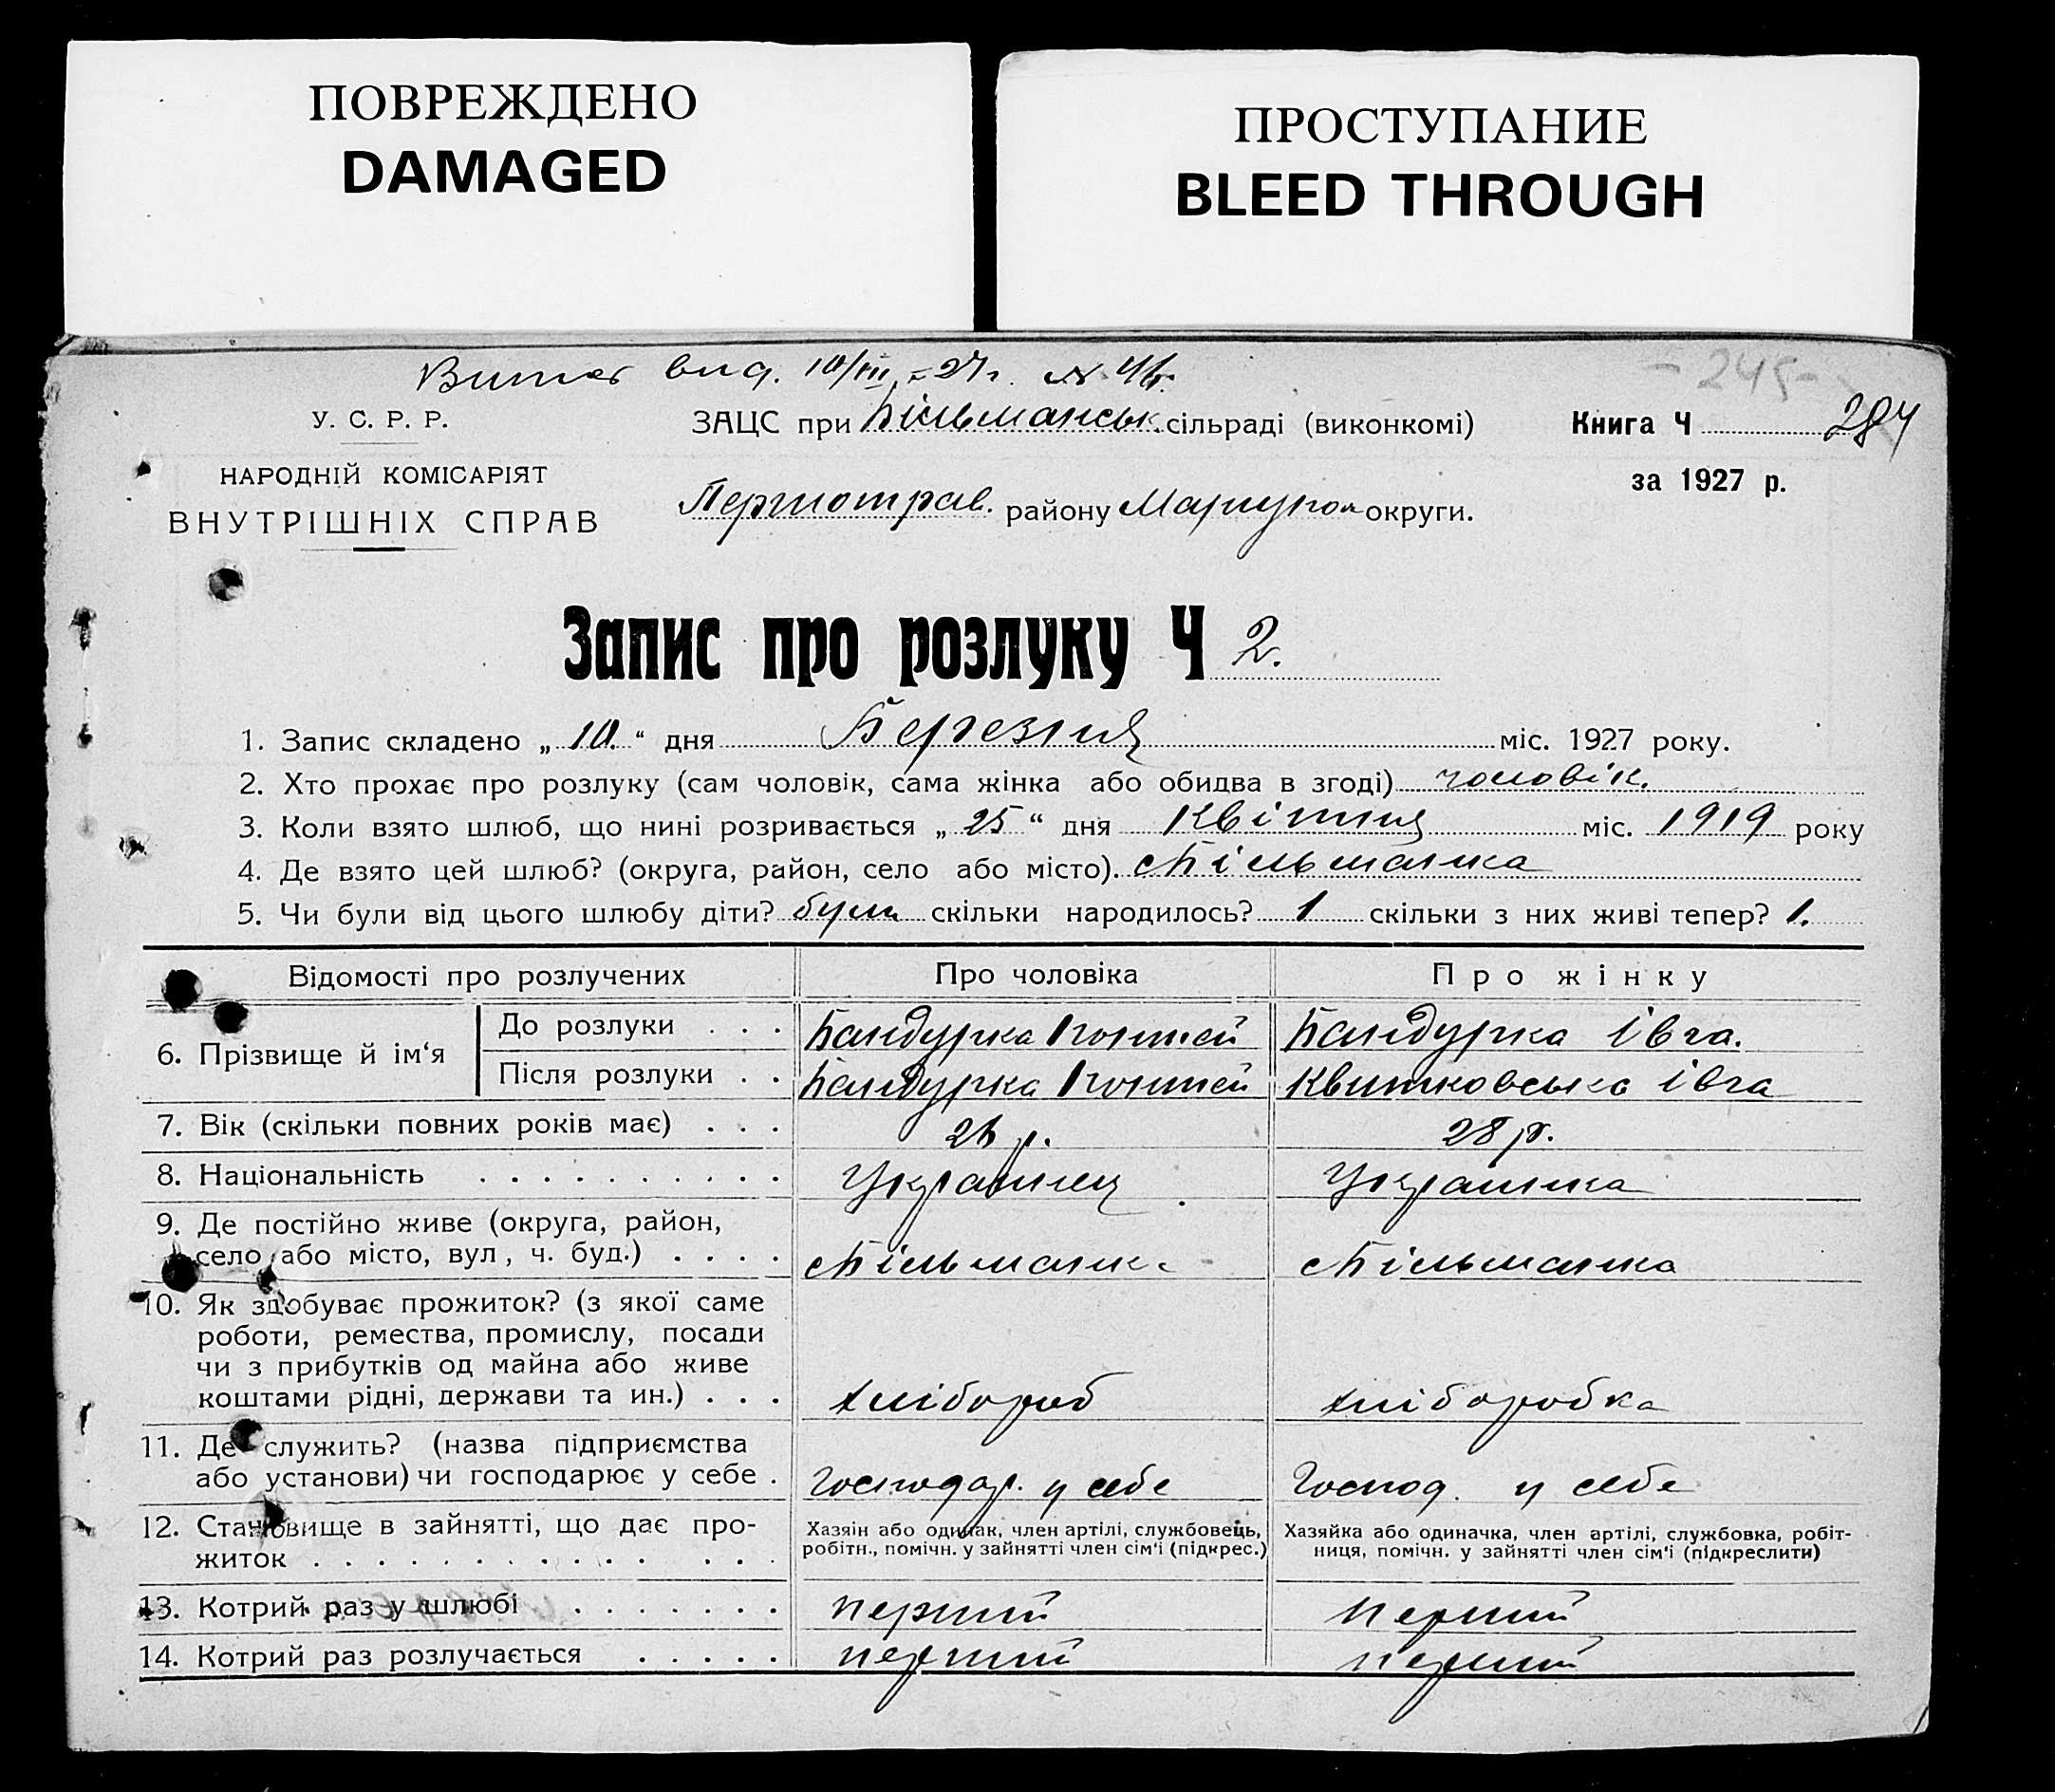 ПОВРЕЖДЕНО
DAMAGED
ПРОСТУПАНИЕ
BLEED THROUGH
- 245 -
вид. 10/III - 27 г. №
284
У. С. Р. Р.
НАРОДНІЙ КОМІСАРІЯТ
ВНУТРІШНІХ СПРАВ
ЗАЦС при Більманськ. сільраді (виконкомі)
Першотрав. району Маріупол округи.
Книга Ч
за 1927 р.
Запис про розлуку Ч 2.
1. Запис складено „ 10. “ дня Березня міс. 1927 року.
2. Хто прохає про розлуку (сам чоловік, сама жінка або обидва в згоді) чоловік.
3. Коли взято шлюб, що нині розривається „ 25 “ дня Квітня міс. 1919 року
4. Де взято цей шлюб? (округа, район, село або місто). Більманка
5. Чи були від цього шлюбу діти? були скільки народилось? 1 скільки з них живі тепер? 1.
Відомості про розлучених Про чоловіка Про жінку
6. Прізвище й ім‘я
До розлуки . . . Бандурка Бандурка Івга.
Після розлуки . . Бандурка Квитковська Івга
7. Вік (скільки повних років має) . . . 26 р. 28 р.
8. Національність . . . . . . . . . . Українец Українка
9. Де постійно живе (округа, район,
село або місто, вул, ч. буд.) . . . . Більманка Більманка
10. Як здобуває прожиток? (з якої саме
роботи, ремества, промислу, посади
чи з прибутків од майна або живе
коштами рідні, держави та ин.) . . . хлібороб хліборобка
11. Де служить? (назва підприємства
або установи) чи господарює у себе . господар. у себе Господ. у себе
12. Становище в зайнятті, що дає про-
житок . . . . . . . . . . . . .
Хазяін або одинак, член артілі, службовець,
робітн., помічн. у зайнятті член сім‘і (підкрес.)
Хазяйка або одиначка, член артілі, службовка, робіт-
ниця, помічн. у зайнятті член сім‘і (підкреслити)
13. Котрий раз у шлюбі . . . . . . . перший перший
14. Котрий раз розлучається . . . . . перший перший